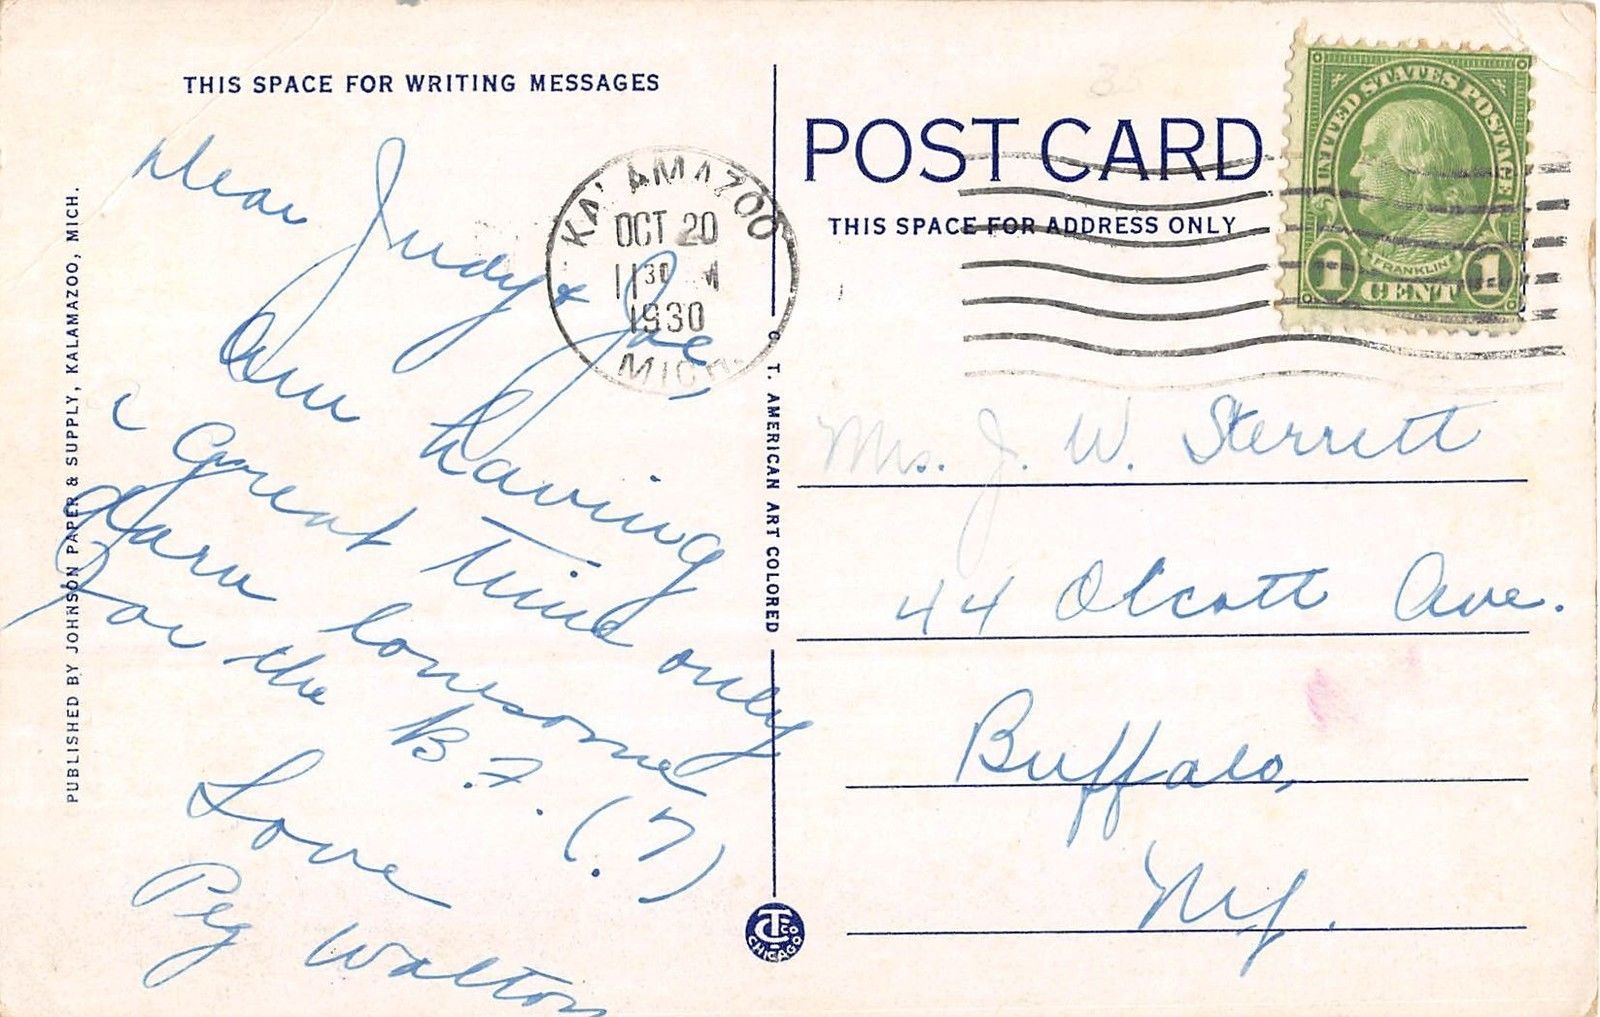 THIS SPACE FOR WRITING MESSAGES
Dear Judy & Joe,
Am having
a great time only
darn lonesome
for the B.F. (?)
Love
Peg Walton
PUBLISHED BY JOHNSON PAPER & SUPPLY, KALAMAZOO, MICH.
KALAMAZOO
OCT 20
11 30
1930
MICH.
C. T. AMERICAN ART COLORED
CTCO
CHICAGO
POST CARD
THIS SPACE FOR ADDRESS ONLY
UNITED STATES POSTAGE
FRANKLIN
1 CENT 1
Mrs. J. W. Sterrett
44 Olcott Ave.
Buffalo,
N.Y.